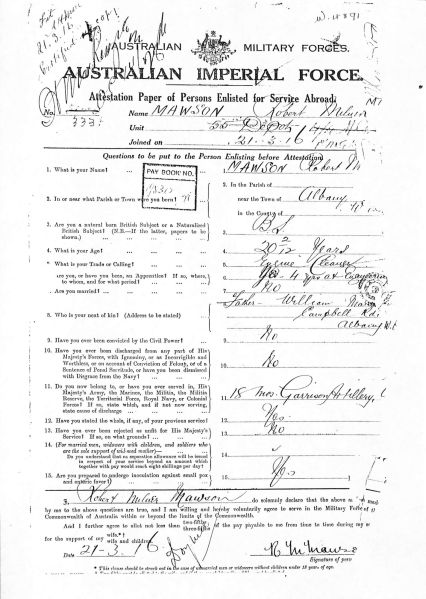 21.3.16
AUSTRALIAN MILITARY FORCES.
AUSTRALIAN IMPERIAL FORCE.
Attestation Paper of Persons Enlisted for Service Abroad.
No. 333 Name MAWSON Robert Milner
Unit 55 Depot
Joined on 21.3.16
Questions to be put to the Person Enlisting before Attestation.
1. What is your Name? MAWSON Robert M
PAY BOOK NO.
2. In or near what Parish or Town were you born?
2. In the Parish of
near the Town of Albany,
in the County of
3. Are you a natural born British Subject or a Naturalised British Subject? (N.B.—If the latter, papers to be shown.) 3. B.S.
4. What is your Age? 4. 20 2/12 Years
5. What is your Trade or Calling? 5. Engine Cleaner
6. Are you, or have you been, an Apprentice? If so, where, to whom, and for what period? 6. Yes 4 yrs at
7. Are you married? 7. No
8. Who is your next of kin? (Address to be stated) Father William
Campbell Rd
Albany W.A
9. Have you ever been convicted by the Civil Power? 9. No
10. Have you ever been discharged from any part of His
Majesty's Forces, with Ignominy, or as Incorrigible and
Worthless, or on account of Conviction of Felony, or of a
Sentence of Penal Servitude, or have you been dismissed
with Disgrace from the Navy? 10. No
11. Do you now belong to, or have you ever served in, His
Majesty's Army, the Marines, the Militia, the Militia
Reserve, the Territorial Force, Royal Navy, or Colonial
Forces? If so, state which, and if not now serving,
state cause of discharge 11. 18 mos. Garrison Artillery,
12. Have you stated the whole, if any, of your previous service? 12. Yes
13. Have you ever been rejected as unfit for His Majesty's
Service? If so, on what grounds? 13. No
14. (For married men, widowers with children, and soldiers who
are the sole support of widowed mother)—
Do you understand that no separation allowance will be issued
in respect of your service beyond an amount which
together with pay would reach eight shillings per day? 14.
15. Are you prepared to undergo inoculation against small pox
and enteric fever? 15. Yes
I, Robert Milner Mawson do solemnly declare that the above
by me to the above questions are true, and I am willing and hereby voluntarily agree to serve in the Military Force
Commonwealth of Australia within or beyond the limits of the Commonwealth.
And I further agree to allot not less than two-fifths three-fifths of the pay payable to me from time to time during my
for the support of my wife.* wife and children.
Date 21-3-16
R M Mawso
Signature of
* This clause should be struck out in the case of unmarried men or widowers without children under 18 years of age.